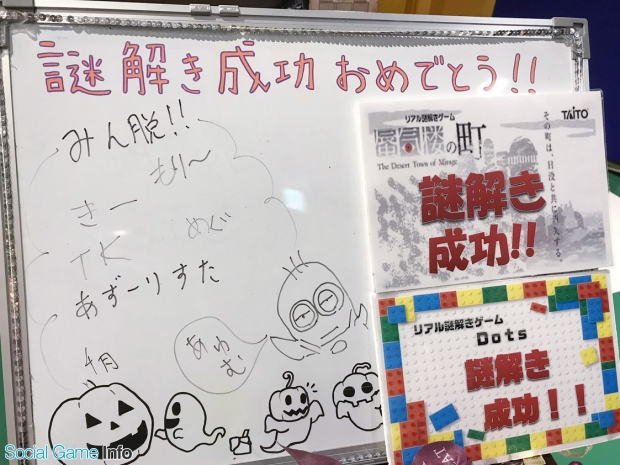 謎解き成功 おめでとう!!
みん脱!!
もり〜
さー
めぐ
TK
あずーりすた
あゆ
む
リアル謎解きゲーム
TAITO
蜃気楼の町
The Desert Town of Mirage
その町は、日没と共に
謎解き
成功!!
リアル謎解きゲーム
Dots
謎解き
成功!!
Social Game Info